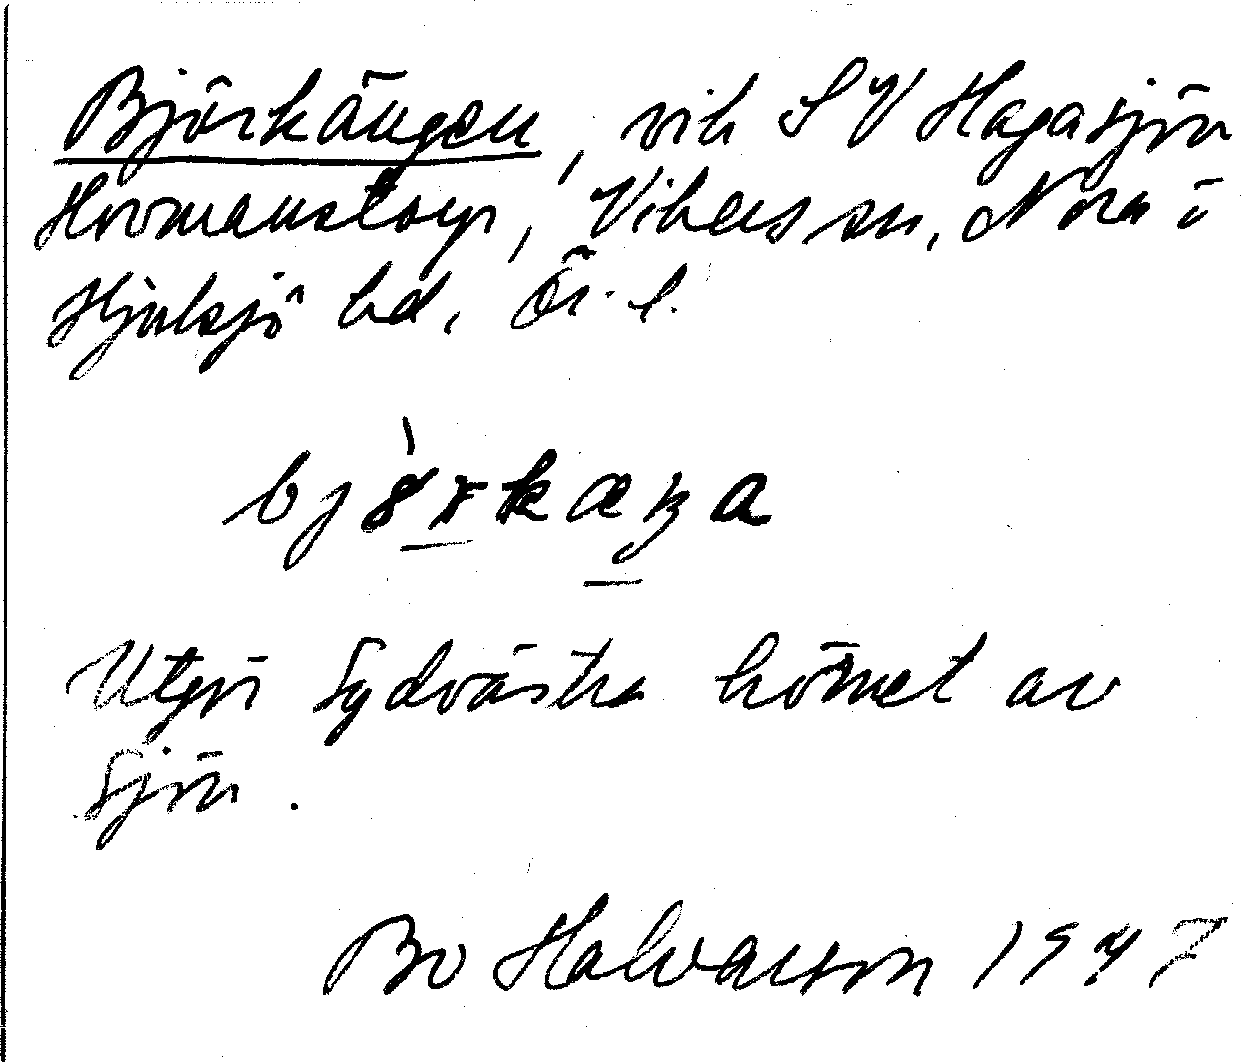 Björkängen, vik SV Hagasjön
Hormanstorp, Vikers sn, Nora o
Hjulsjö bd, Ör. l.
Utgör Sydvästra hörnet av
Sjön.
Bo Halvarson 1947